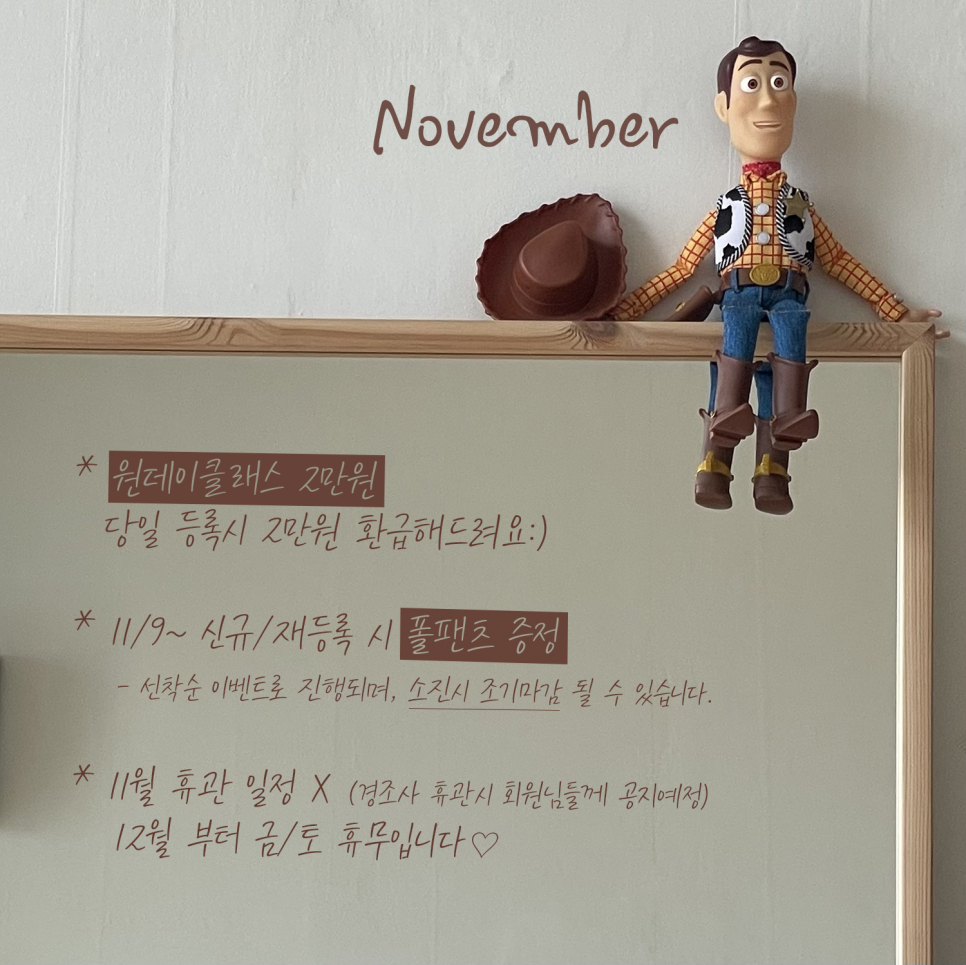 November
* 원데이클래스 2만원
당일 등록시 2만원 환급해드려요:)
* 11/9~ 신규/재등록 시 폴팬츠 증정
- 선착순 이벤트로 진행되며, 소진시 조기마감 될 수 있습니다.
* 11월 휴관 일정 X (경조사 휴관시 회원님들께 공지예정)
12월 부터 금/토 휴무입니다♡